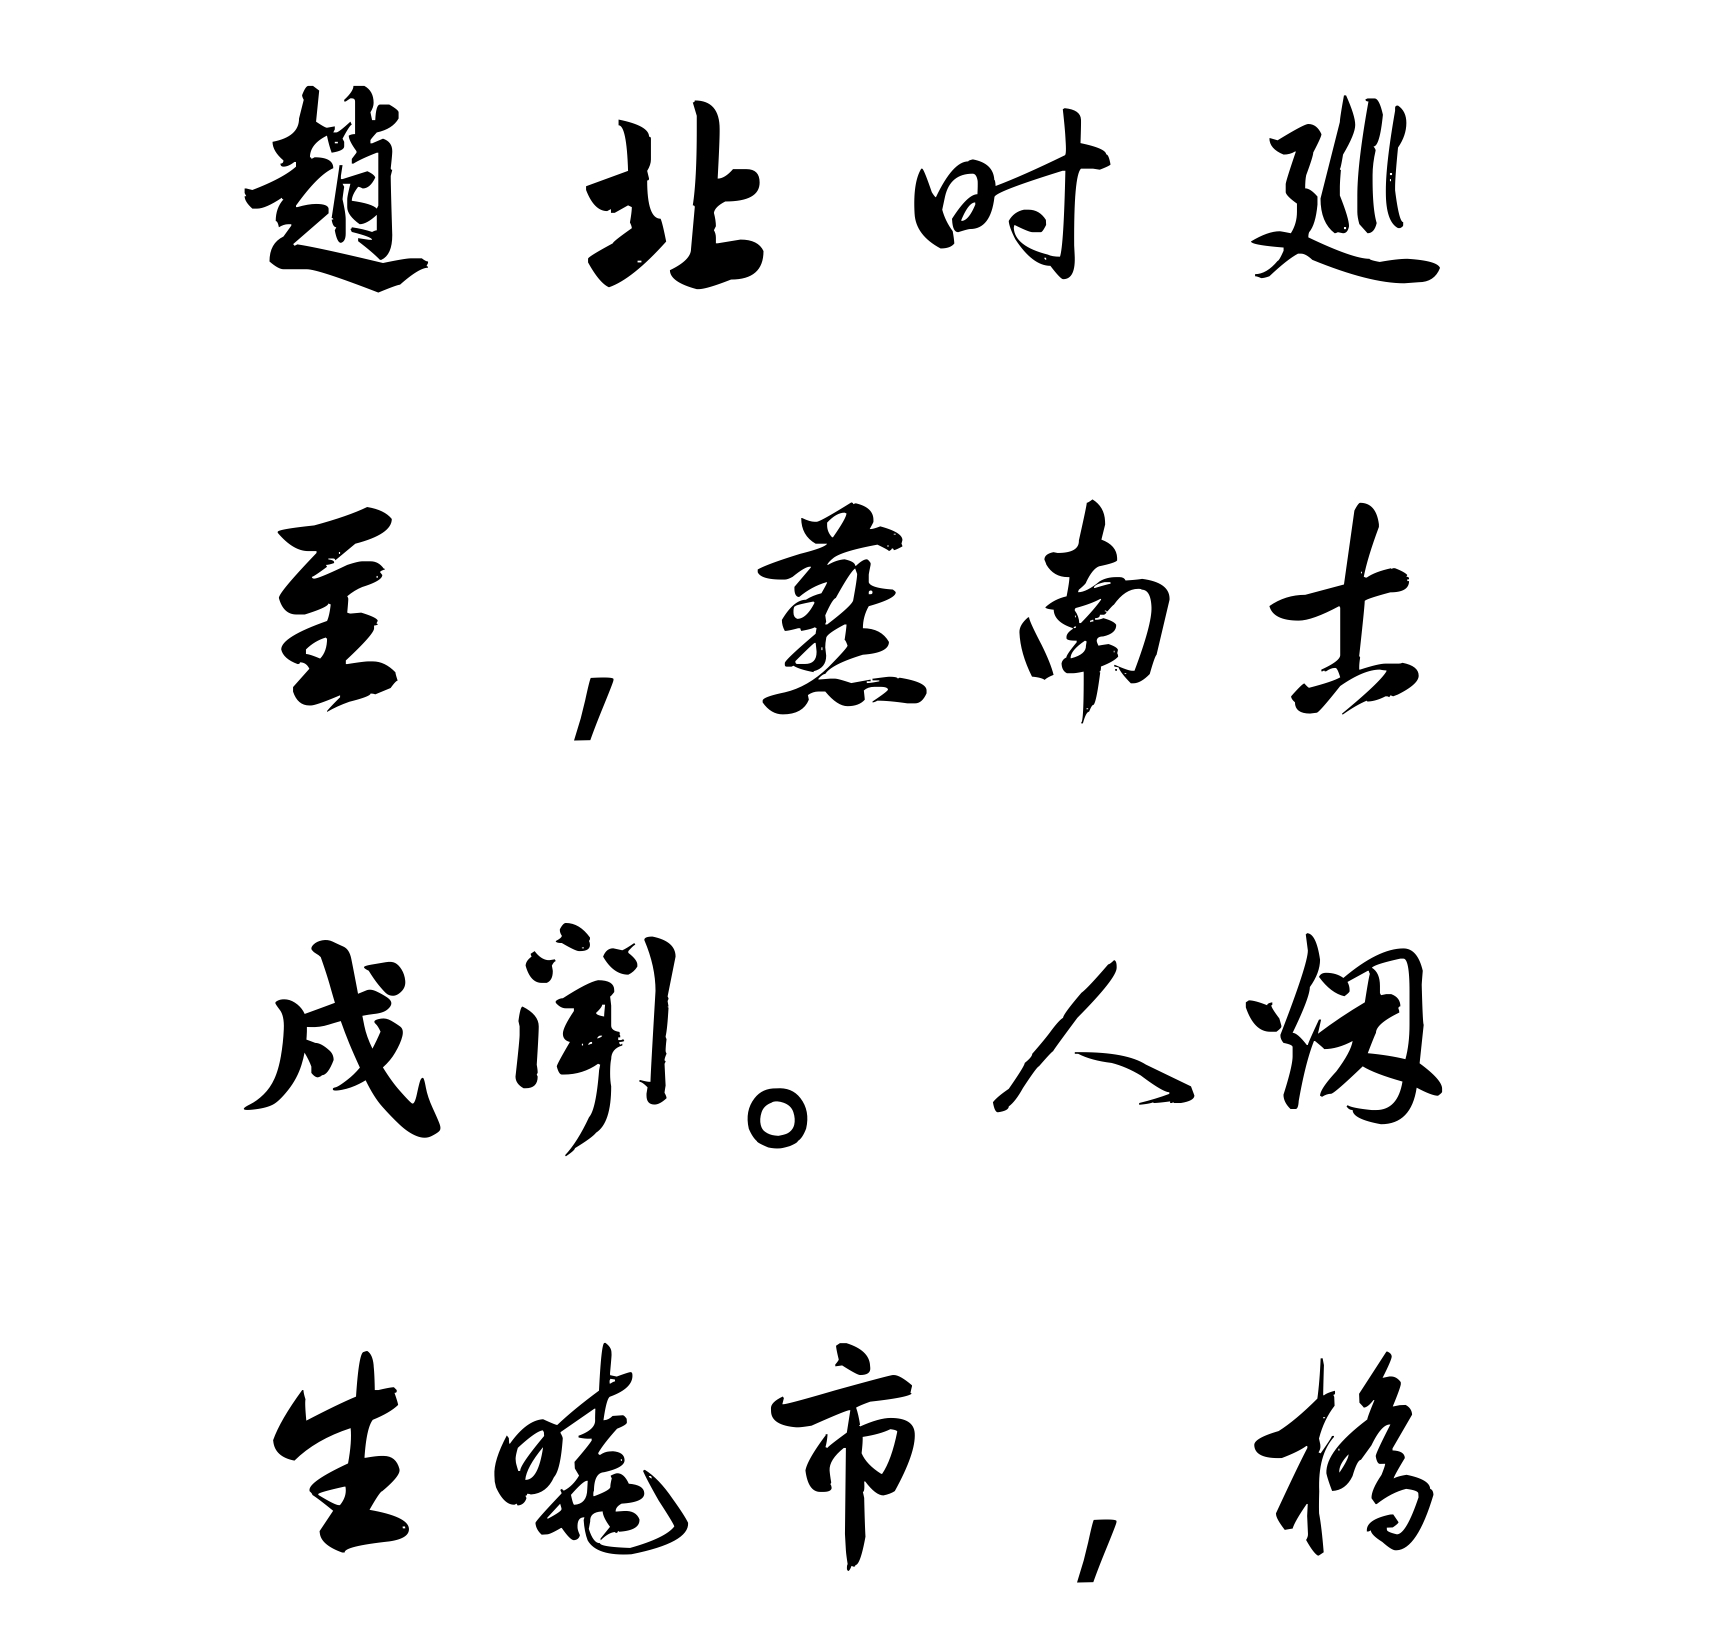 趙北时巡
至,燕南古
戍闻。人烟
生曉市,橋